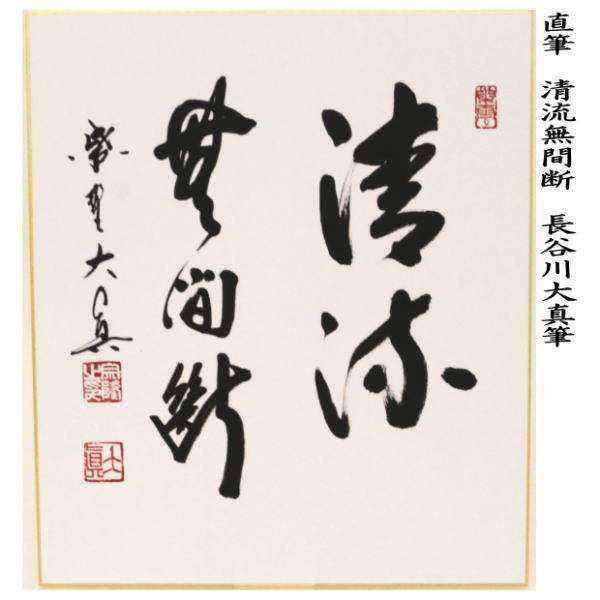 直筆　清流無間断　長谷川大真筆
清流
無間断
紫野大真